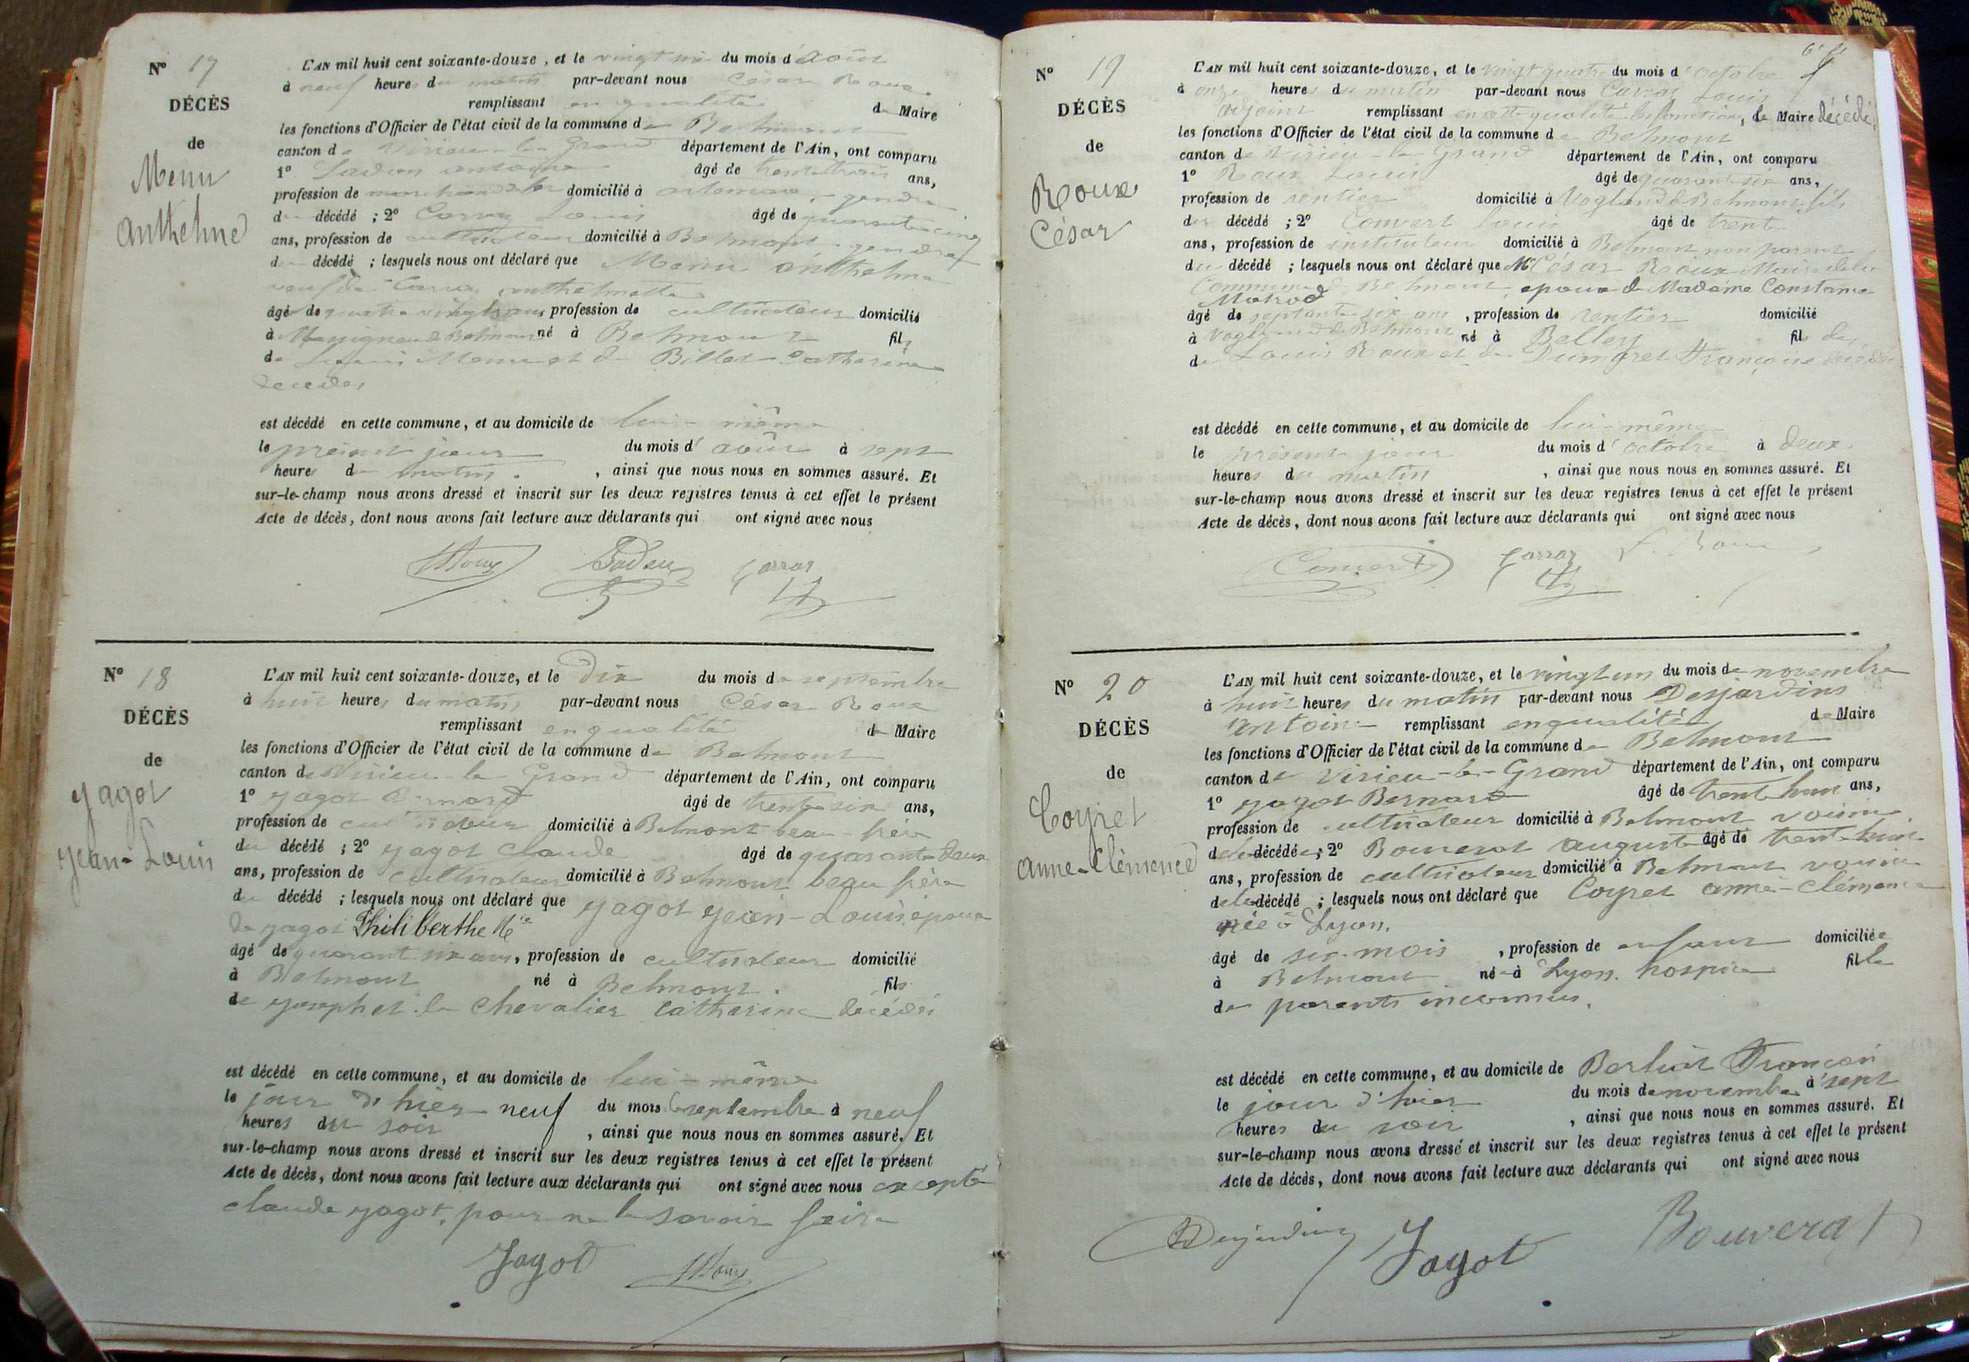 N° 17
DÉCÈS
de
Menu
Anthelme
L'AN mil huit cent soixante-douze, et le vingt six du mois d'août
à neuf heures du matin par-devant nous César Roux
remplissant en qualité de Maire
les fonctions d'Officier de l'état civil de la commune de Belmont
canton de Virieu-le-Grand département de l'Ain, ont comparu
1° âgé de trente trois ans,
profession de domicilié à gendre
du décédé ; 2° Carraz Louis âgé de quarante cinq
ans, profession de cultivateur domicilié à Belmont gendre
du décédé ; lesquels nous ont déclaré que Menu Anthelme
veuf de
âgé de quatre vingts ans profession de cultivateur domicilié
à de Belmont né à Belmont fils
de Menu et de Billet Catherine
décédés
est décédé en cette commune, et au domicile de lui-même
le présent jour du mois d'août à sept
heures du matin, ainsi que nous nous en sommes assuré. Et
sur-le-champ nous avons dressé et inscrit sur les deux registres tenus à cet effet le présent
Acte de décès, dont nous avons fait lecture aux déclarants qui ont signé avec nous
Roux Carraz
N° 18
DÉCÈS
de
Jagot
Jean-Louis
L'AN mil huit cent soixante-douze, et le Dix du mois de septembre
à huit heures du matin par-devant nous César Roux
remplissant en qualité de Maire
les fonctions d'Officier de l'état civil de la commune de Belmont
canton de Virieu-le-Grand département de l'Ain, ont comparu
1° Jagot Bernard âgé de trente six ans,
profession de cultivateur domicilié à Belmont beau-frère
du décédé ; 2° Jagot Claude âgé de quarante deux
ans, profession de cultivateur domicilié à Belmont beau frère
du décédé ; lesquels nous ont déclaré que Jagot Jean-Louis époux
de Jagot Philiberthe Mie
âgé de quarante six ans, profession de cultivateur domicilié
à Belmont né à Belmont. fils
de Joseph et de Chevalier Catherine décédés
est décédé en cette commune, et au domicile de lui-même
le jour d'hier neuf du mois de septembre à neuf
heures du soir, ainsi que nous nous en sommes assuré. Et
sur-le-champ nous avons dressé et inscrit sur les deux registres tenus à cet effet le présent
Acte de décès, dont nous avons fait lecture aux déclarants qui ont signé avec nous excepté
Claude Jagot, pour ne le savoir faire
Jagot Roux
N° 19
DÉCÈS
de
Roux
César
L'AN mil huit cent soixante-douze, et le vingt quatre du mois d'octobre
à onze heures du matin par-devant nous Carraz Louis
adjoint remplissant en cette qualité les fonctions, de Maire décédé
les fonctions d'Officier de l'état civil de la commune de Belmont
canton de Virieu-le-Grand département de l'Ain, ont comparu
1° Roux Louis âgé de quarante six ans,
profession de rentier domicilié à Vogland de Belmont, fils
du décédé ; 2° Convert Louis âgé de trente
ans, profession de instituteur domicilié à Belmont non parent
du décédé ; lesquels nous ont déclaré que Mr César Roux Maire de la
Commune de Belmont, époux de Madame Constance
âgé de septante six ans, profession de rentier domicilié
à Vogland de Belmont né à Belley fils de
de Louis Roux et de Dumoret Françoise décédés
est décédé en cette commune, et au domicile de lui-même
le présent jour du mois d'octobre à deux
heures du matin, ainsi que nous nous en sommes assuré. Et
sur-le-champ nous avons dressé et inscrit sur les deux registres tenus à cet effet le présent
Acte de décès, dont nous avons fait lecture aux déclarants qui ont signé avec nous
Convert Carraz L. Roux
N° 20
DÉCÈS
de
Coyret
Anne-Clémence
L'AN mil huit cent soixante-douze, et le vingt un du mois de novembre
à huit heures du matin par-devant nous Desjardins
Antoine remplissant en qualité de Maire
les fonctions d'Officier de l'état civil de la commune de Belmont
canton de Virieu-le-Grand département de l'Ain, ont comparu
1° Jagot Bernard âgé de trente huit ans,
profession de cultivateur domicilié à Belmont voisin
de la décédée ; 2° Bouverat Auguste âgé de trente huit
ans, profession de cultivateur domicilié à Belmont voisin
de la décédé ; lesquels nous ont déclaré que Coyret Anne-Clémence
née à Lyon,
âgé de six mois, profession de enfant domiciliée
à Belmont née à Lyon hospice fille
de parents inconnus.
est décédé en cette commune, et au domicile de Berluit François
le jour d'hier du mois de novembre à sept
heures du soir, ainsi que nous nous en sommes assuré. Et
sur-le-champ nous avons dressé et inscrit sur les deux registres tenus à cet effet le présent
Acte de décès, dont nous avons fait lecture aux déclarants qui ont signé avec nous
Desjardins Jagot Bouverat